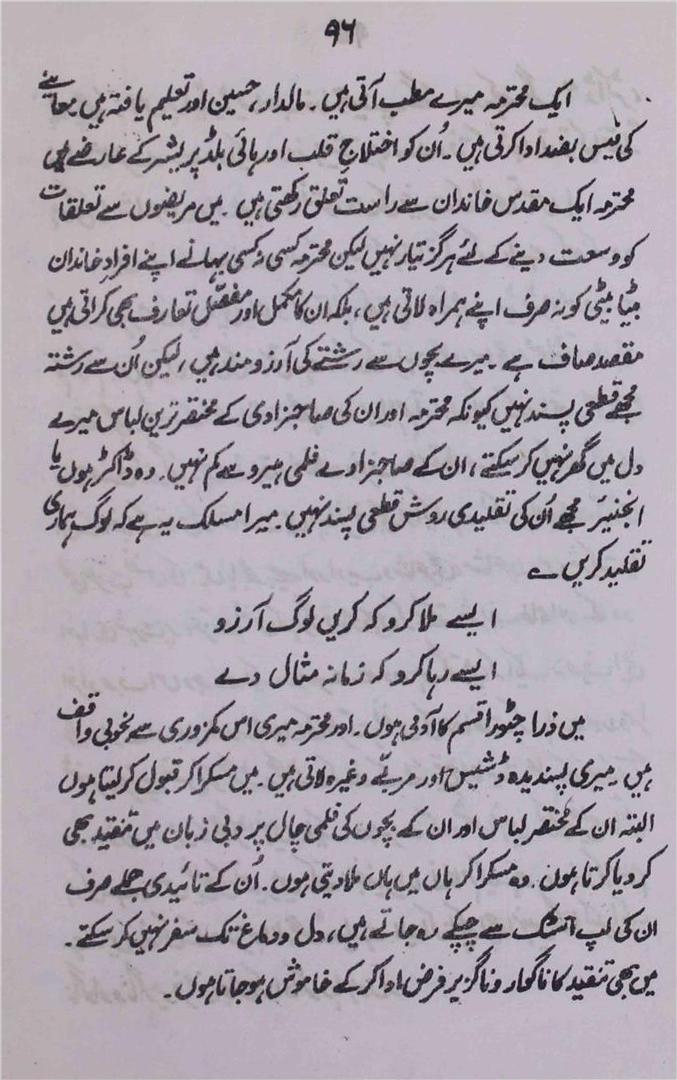 ۹۶
ایک محترمہ میرے مطب آتی ہیں۔ مالدار، حسین اور تعلیم یافتہ ہیں معائنے
کی فیس بضد ادا کرتی ہیں۔ اُن کو اختلاجِ قلب اور ہائی بلڈ پریشر کے عارضے ہیں
محترمہ ایک مقدس خاندان سے راست تعلق رکھتی ہیں۔ میں مریضوں سے تعلقات
کو وسعت دینے کے لئے ہرگز تیار نہیں لیکن محترمہ کسی نہ کسی بہانے اپنے افرادِ خاندان
بیٹا بیٹی کو نہ صرف اپنے ہمراہ لاتی ہیں، بلکہ ان کا مکمل اور مفصّل تعارف بھی کراتی ہیں
مقصد صاف ہے۔ میرے بچوں سے رشتے کی آرزو مند ہیں، لیکن اُن سے رشتہ
مجھے قطعی پسند نہیں کیونکہ محترمہ اور ان کی صاحبزادی کے مختصر ترین لباس میرے
دل میں گھر نہیں کر سکتے، ان کے صاحبزادے فلمی ہیرو سے کم نہیں۔ وہ ڈاکٹر ہوں یا
انجنیئر مجھے اُن کی تقلیدی روش قطعی پسند نہیں۔ میرا مسلک یہ ہے کہ لوگ ہماری
تقلید کریں ؎
ایسے ملا کرو کہ کریں لوگ آرزو
ایسے رہا کرو کہ زمانہ مثال دے
میں ذرا چٹورا قسم کا آدمی ہوں۔ اور محترمہ میری اس کمزوری سے بخوبی واقف
ہیں۔ میری پسندیدہ ڈشیس اور مربّے وغیرہ لاتی ہیں۔ میں مسکرا کر قبول کر لیتا ہوں
البتہ ان کے مختصر لباس اور ان کے بچوں کی فلمی چال پر دبی زبان میں تنقید بھی
کر دیا کرتا ہوں۔ وہ مسکرا کر ہاں میں ہاں ملا دیتی ہوں۔ اُن کے تائیدی جملے صرف
ان کی لپ اسٹک سے چپکے رہ جاتے ہیں، دل و دماغ تک سفر نہیں کر سکتے۔
میں بھی تنقید کا ناگوار و ناگزیر فرض ادا کر کے خاموش ہو جاتا ہوں۔